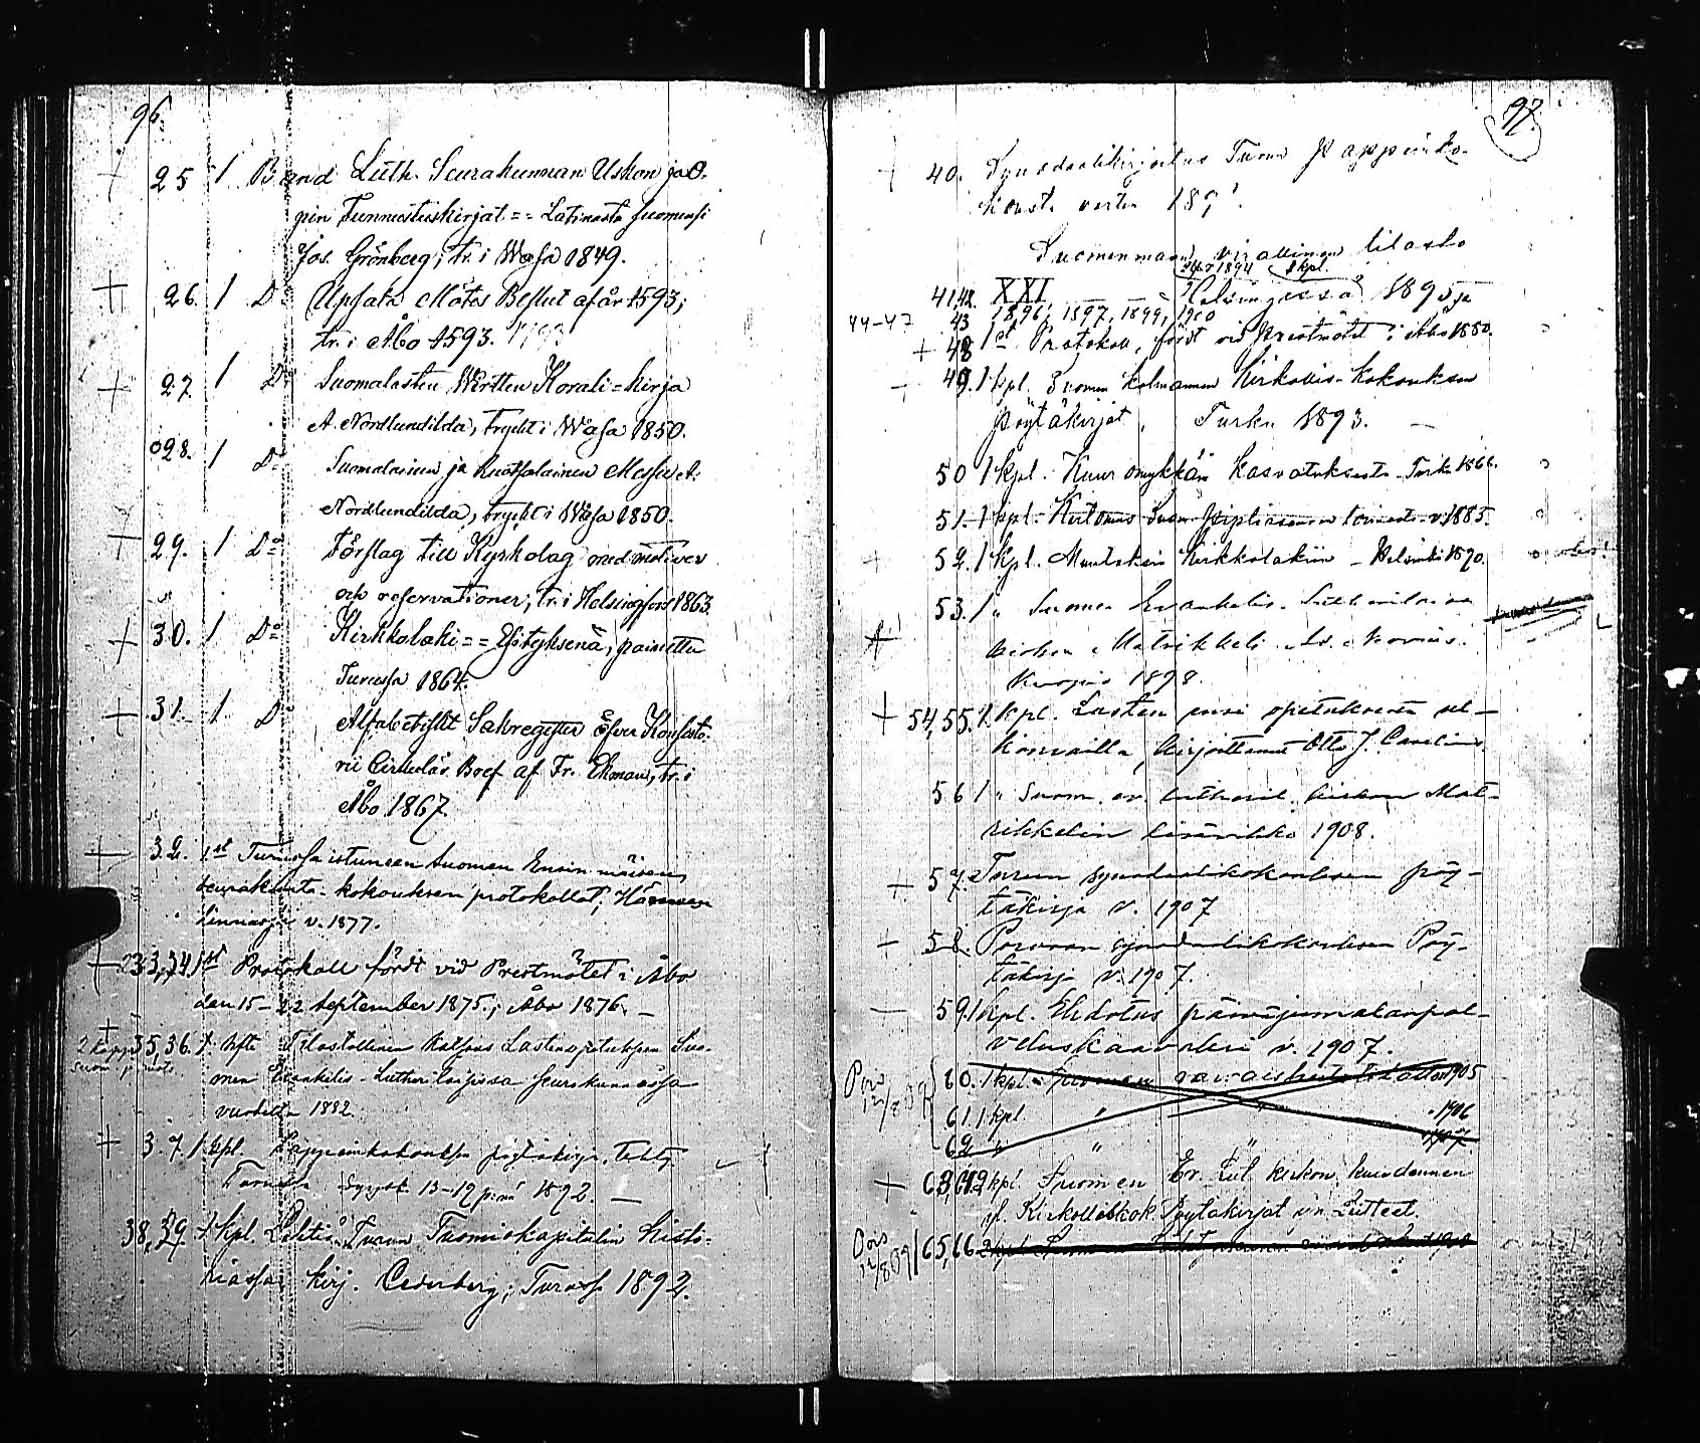 96.
+ 25 1 Band Luth. Seurakunnan Uskon ja O-
pin Tunnustuskirjat == Latinasta Suomensi
Jos. Grönberg; tr. i Wasa 1849.
+ 26. 1 Dº Upsala Mötes Beslut af år 1593;
tr. i Åbo 1593.
+ 27. 1 Dº Suomalasten Wirtten Korali=Kirja
A. Nordlundilda, tryckt i Wasa 1850.
28. 1 Dº Suomalainen ja Ruotsalainen Messu A.
Nordlundilda, tryckt i Wasa 1850.
+ 29. 1 Dº Förslag till Kyrkolag med motiver
och reservationer; tr. i Helsingfors 1863.
+ 30. 1 Dº Kirkkolaki == Esityksenä, painettu
Turussa 1864.
+ 31. 1 Dº Alfabetiskt Sakregister öfver Konsisto-
rii Cirkulär Bref af Fr. Ekman, tr. i
Åbo 1867.
+ 32. 1 st Turussa istuneen Suomen Ensimmäisen
seurakunta-kokouksen protokollat; Hämeen
linnassa v. 1877.
+ 33,34 1 st Protokoll fördt vid Prestmötet i Åbo
den 15-22 September 1875.; Åbo 1876. —
+
2 kapp 35,36. 1. Hft Tilastollinen Katsaus Lastenopetuksen Suo-
men Evankelis-Lutherilaisissa Seurakunnissa
vuodelta 1882.
+ 37 1 kpl. Pappeinkokouksen pöytäkirja, tehty
Turussa Syysk. 13-19 p:nä 1892. —
38,39. 1 kpl. Lehtiä Turun Tuomiokapitulin histo-
riassa kirj. Cederberg; Turussa 1892.
97.
+ 40. Synodaalikirjoitus Turun Pappeinko-
koust. varten 189
Suomenmaan virallinen tilasto
1894 1 kpl.
41,42. XXI Helsingissä 1895 ja
44-47 43 1896, 1897, 1899, 1900
+ 48 1 st Protokoll, fördt vid Prestmötet i Åbo 1880.
49. 1 kpl. Suomen kolmannen Kirkollis-Kokouksen
pöytäkirjat, Turku 1893. —
50 1 kpl. Kuuromykkäin kasvatuksesta Turku 1866.
51. 1 kpl. Kertomus Suom. Pipliaseuran toimesta v. 1885.
+ 52. 1 kpl. Muutoksia Kirkkolakiin – Helsinki 1890.
53. 1 " Suomen Evankelis. Lutherilaisen
kirkon Matrikkeli
Kuopio 1898.
+ 54,55. 2 kpl. Lasten uusi opetuksesta us-
konnoilla, kirjoittanut Otto J. Carelius
56 1 " Suom. ev. lutheril. kirkon Mat-
rikkelin lisävihko 1908.
+ 57. Turun synodaalikokouksen pöy-
täkirja v. 1907
+ 58. Porvoon synodaalikokouksen Pöy-
täkirja v. 1907.
— 59. 1 kpl. Ehdotus päiväjumalanpal-
veluskaavaksi v. 1907.
60. 1 kpl. Suomen 1905
61. 1 kpl. " " 1906
62 " " " 1907.
+ 63,64 2 kpl. Suomen Ev. Lut. kirkon kuudennen
Kirkolliskok. Pöytäkirjat y.n. Liitteet.
Pois 12/8 09 65,66 2 kpl. Suomen 1908